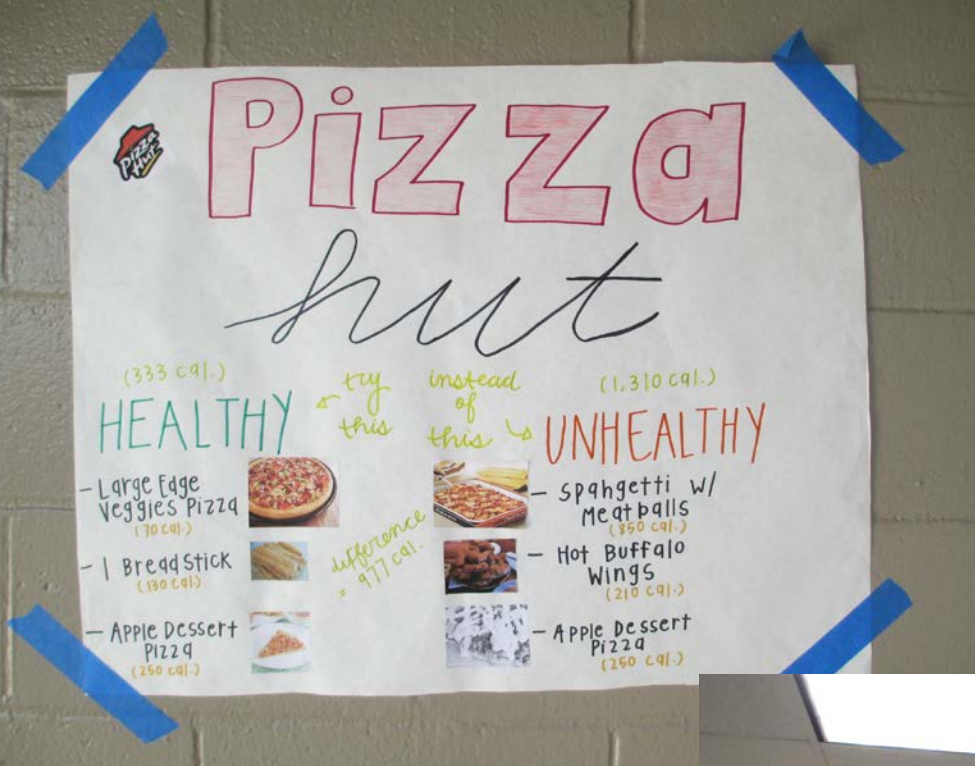 Pizza
Hut
Pizza
hut
(333 cal.)
HEALTHY
try
this
instead
of
this
(1,310 cal.)
UNHEALTHY
- Large Edge
Veggies Pizza
(70 cal.)
- 1 BreadStick
(130 cal.)
- Apple Dessert
Pizza
(250 cal.)
difference
= 977 cal.
- Spahgetti w/
Meatballs
(850 cal.)
- Hot Buffalo
Wings
(210 cal.)
- Apple Dessert
Pizza
(250 cal.)